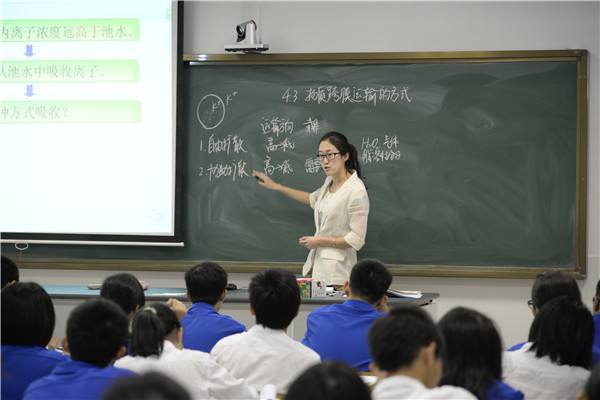 内离子浓度远高于池水。
从池水中吸收离子。
种方式吸收？
4.3 物质跨膜运输的方式
K⁺ K⁺
运输方向 载体
1. 自由扩散 高→低 H₂O 气体
2. 协助扩散 高→低 需要